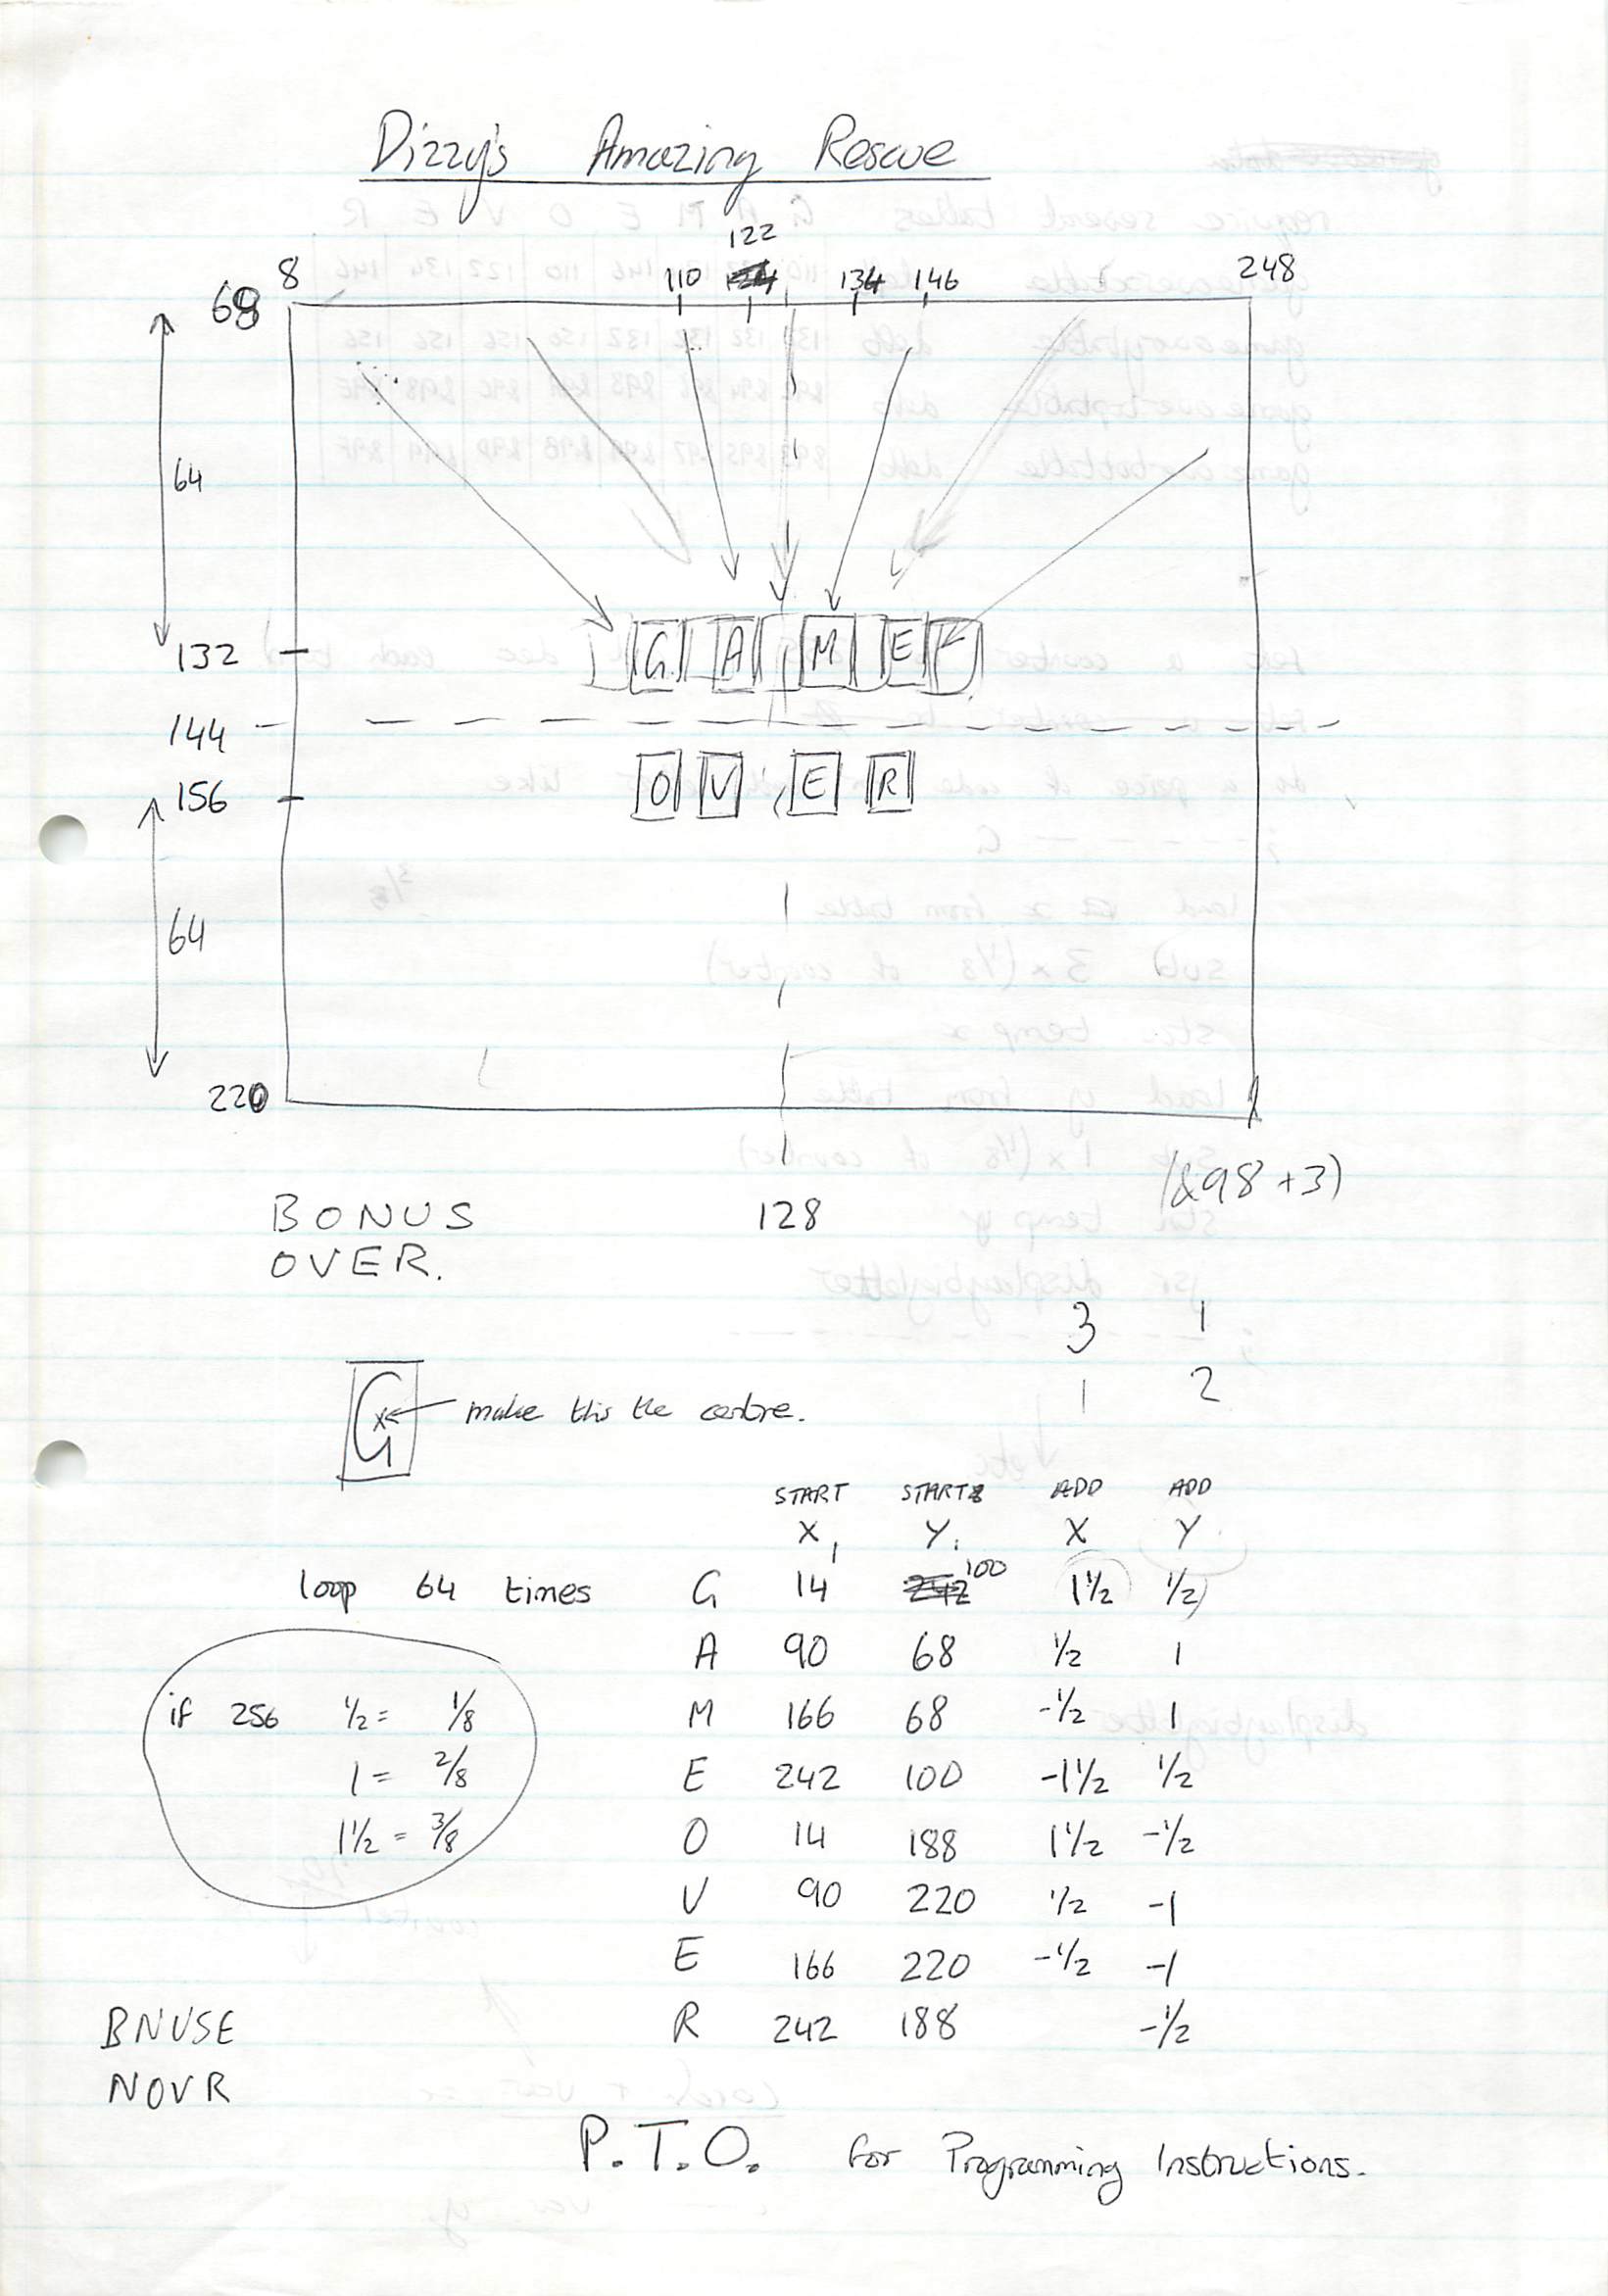 Dizzy's Amazing Rescue
122
8 110 134 146 248
68
64
132 G A M E
144
156 O V E R
64
220
(&98 + 3)
BONUS 128
OVER.
3 1
1 2
G x make this the centre.
START START ADD ADD
X Y X Y
loop 64 times G 14 100 1½ ½
A 90 68 ½ 1
if 256 ½ = ⅛ M 166 68 -½ 1
1 = 2/8 E 242 100 -1½ ½
1½ = 3/8 O 14 188 1½ -½
V 90 220 ½ -1
E 166 220 -½ -1
BNUSE R 242 188 -½
NOVR
P.T.O. for Programming Instructions.